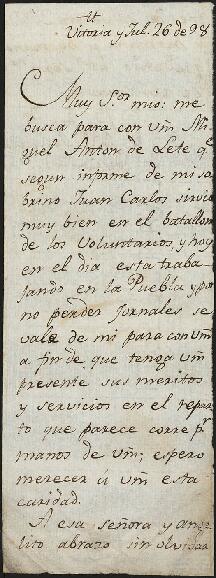 Vitoria y Jul. 26 de 98
Muy Sor mio: me
busca para con Vm Mi-
guel Anton de Lete qe
segun informe de mi so
brino Juan Carlos sirvió
muy bien en el batallon
de los Voluntarios y hoy
en el dia esta traba
jando en la Puebla y por
no perder jornales se
vale de mi para con Vm
a fin de que tenga Vm
presente sus meritos
y servicios en el repar
to que parece corre pr
manos de Vm; espero
merecer à Vm esta
caridad.
A esa señora y ange
lito abrazo sin olvidar